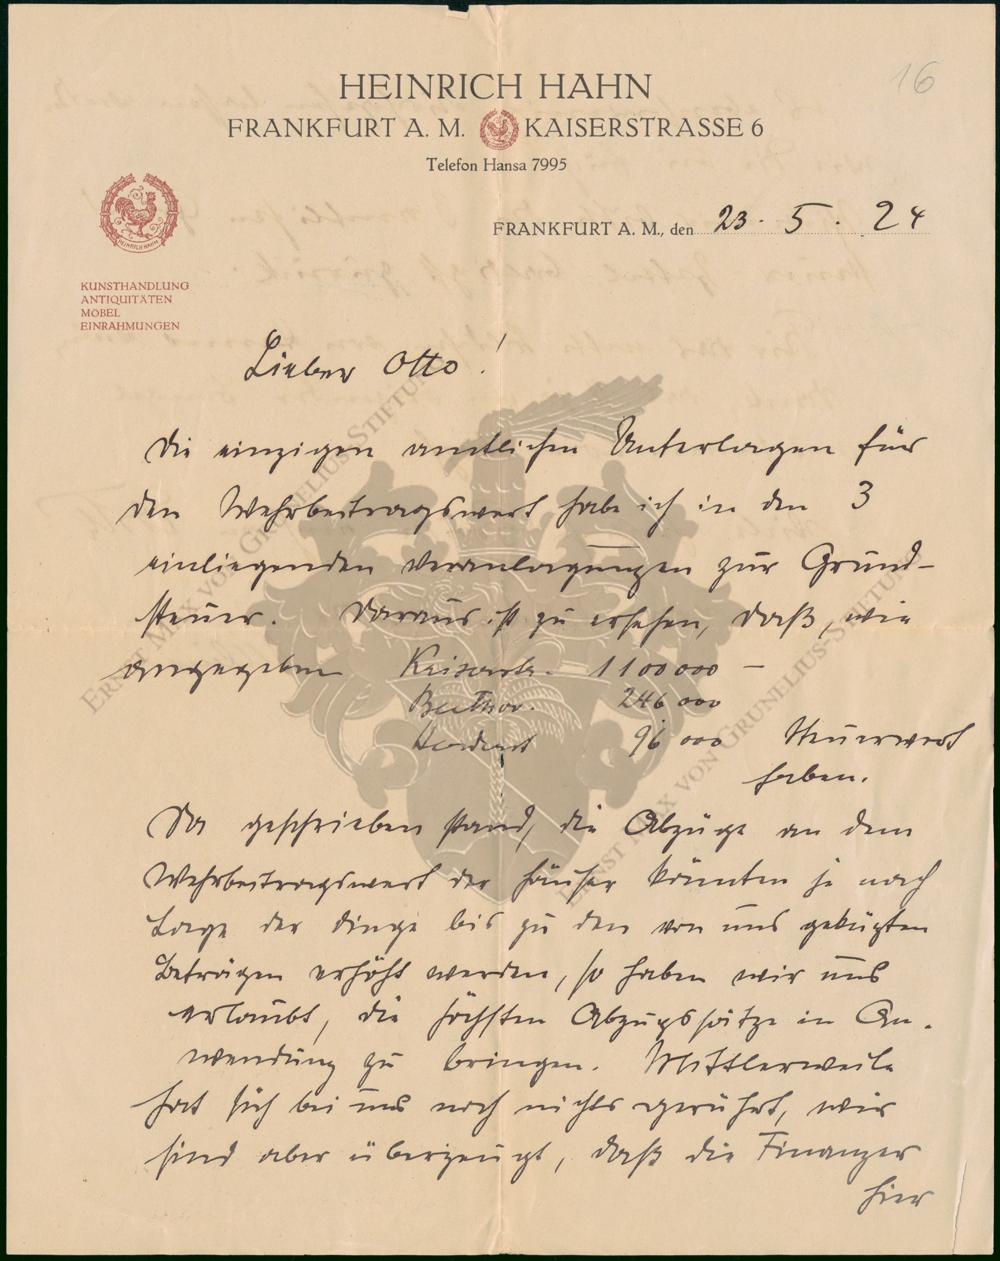 16
HEINRICH HAHN
FRANKFURT A. M. KAISERSTRASSE 6
Telefon Hansa 7995
HEINRICH HAHN
FRANKFURT A. M., den 23. 5. 24
KUNSTHANDLUNG
ANTIQUITÄTEN
MÖBEL
EINRAHMUNGEN
Lieber Otto!
Die einzigen amtlichen Unterlagen für
den Wehrbeitragswert habe ich in den 3
einliegenden Veranlagungen zur Grund-
steuer. Daraus ist zu ersehen, daß, wie
angegeben Kaiserstr. 1100000 —
Beethov. 246 000
96 000 Steuerwert
haben.
Da geschrieben stand, die Abzüge an dem
Wehrbeitragswert der Häuser könnten je nach
Lage der Dinge bis zu den von uns
Beträgen erhöht werden, so haben wir uns
erlaubt, die höchsten Abzugssätze in An-
wendung zu bringen. Mittlerweile
hat sich bei uns noch nichts gerührt, wir
sind aber überzeugt, daß die Finanzer
hier
ERNST MAX VON GRUNELIUS-STIFTUNG
ERNST MAX VON GRUNELIUS-STIFTUNG